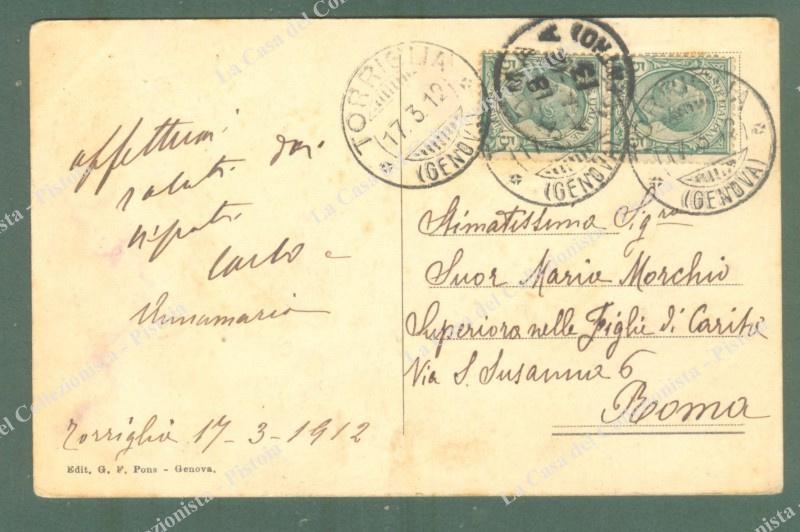 affettuosi
saluti dai
nipoti
Carlo e
Annamaria
Torriglia 17-3-1912
Edit. G. F. Pons - Genova.
TORRIGLIA
17.3.12
(GENOVA)
(GENOVA)
(GENOVA)
Stimatissima Sig.ra
Suor Maria Morchio
Superiora nelle Figlie di Carità
Via S. Susanna 6
Roma
La Casa del Collezionista - Pistoia